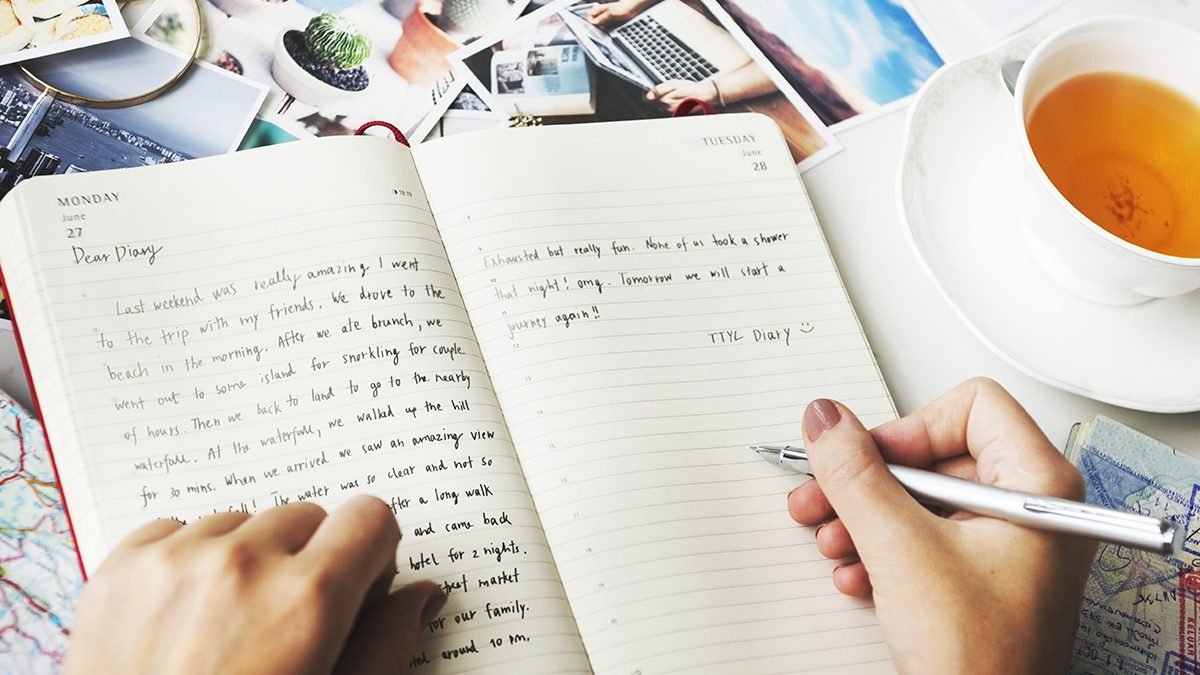 MONDAY
June
27
Dear Diary
Last weekend was really amazing I went
to the trip with my friends. We drove to the
beach in the morning. After we ate brunch, we
went out to some island for snorkling for couple
of hours. Then we back to land to go to the nearby
waterfall. At the waterfall, we walked up the hill
for 30 mins. When we arrived we saw an amazing view
waterfall! The water was so clear and not so
after a long walk
and came back
hotel for 2 nights.
street market
for our family.
around 10 pm.
TUESDAY
June
28
Exhausted but really fun. None of us took a shower
that night! omg. Tomorrow we will start a
journey again!!
TTYL Diary
KELUAR